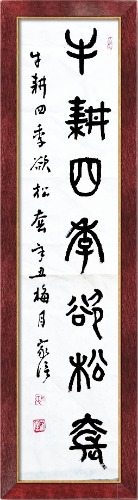 牛耕四季欲松套
牛耕四季欲松套辛丑梅月家